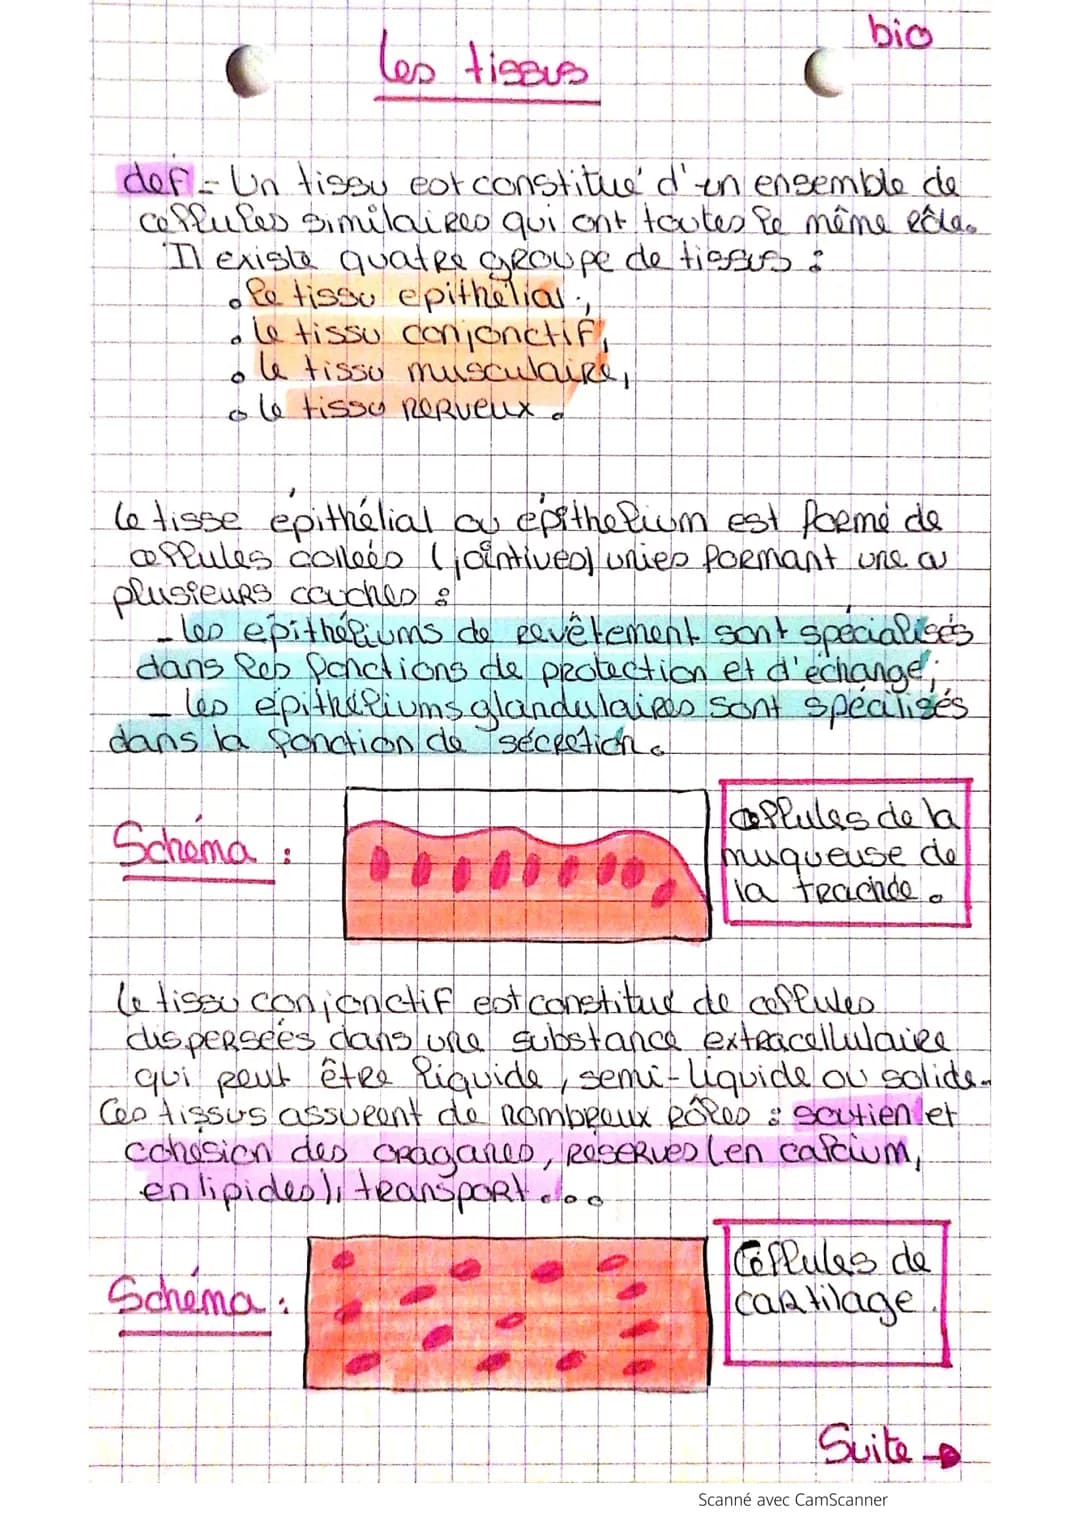 bio
Les tissus
def = Un tissu est constitué d'un ensemble de
cellules similaires qui ont toutes le même rôle.
Il existe quatre groupe de tissus :
• le tissu epithélial ;
• le tissu conjonctif,
• le tissu musculaire,
• le tissu nerveux.
Le tisse épithélial ou épithelium est formé de
cellules collées (jointives) unies formant une ou
plusieurs couches :
- les épithéliums de revêtement sont spécialisés
dans les fonctions de protection et d'échange ;
- les épithéliums glandulaires sont spécilisés
dans la fonction de sécretion.
Schéma :
cellules de la
muqueuse de
la trachée.
Le tissu conjonctif est constitué de cellules
dispersées dans une substance extracellulaire
qui peut être liquide, semi-liquide ou solide.
Ces tissus assurent de nombreux rôles : soutien et
cohésion des oraganes, réserves (en calcium,
en lipides), transport...
Schéma :
Cellules de
cartilage.
Suite →
Scanné avec CamScanner